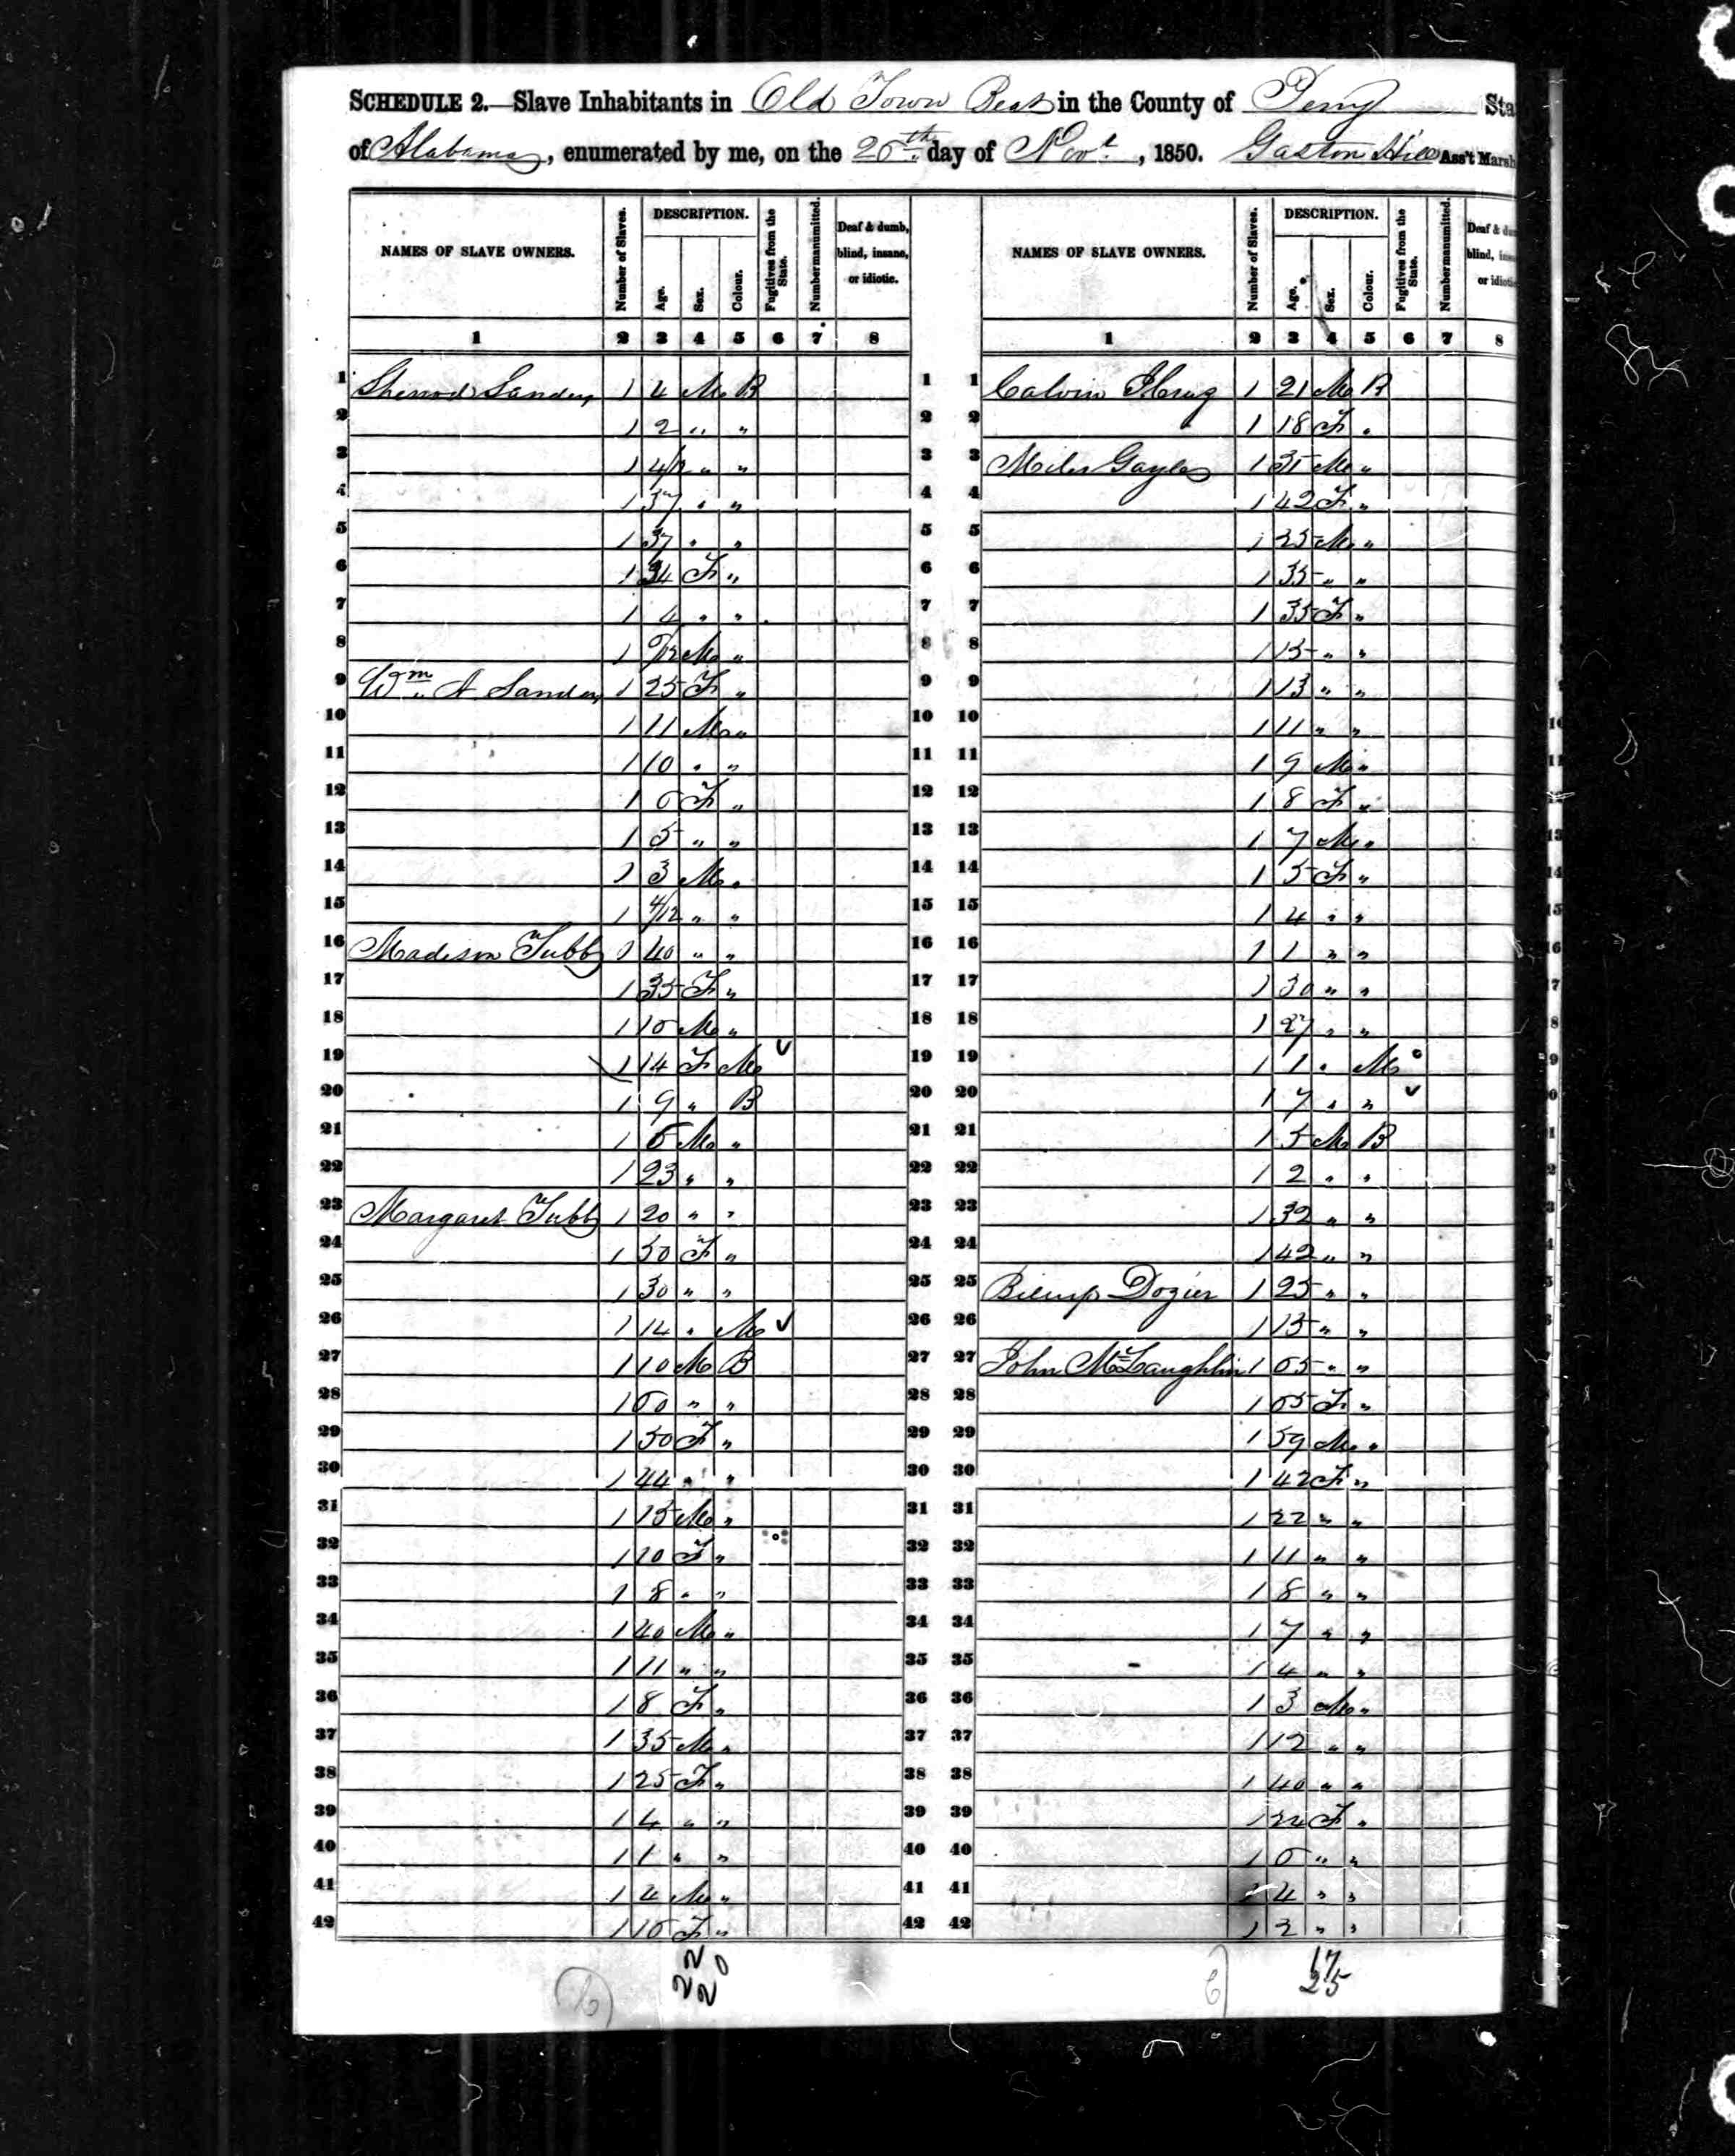 SCHEDULE 2.—Slave Inhabitants in Old Town Beat in the County of Perry Sta
of Alabama, enumerated by me, on the 26th day of Novr, 1850. Gaston Hill Ass't Marsh
NAMES OF SLAVE OWNERS. Number of Slaves. DESCRIPTION. Age. Sex. Colour. Fugitives from the State. Number manumitted. Deaf & dumb, blind, insane, or idiotic.
NAMES OF SLAVE OWNERS. Number of Slaves. DESCRIPTION. Age. Sex. Colour. Fugitives from the State. Number manumitted. Deaf & dum blind, insan or idiotic
1 2 3 4 5 6 7 8 1 2 3 4 5 6 7 8
1 Sherrod Sanders 1 4 M B 1
2 1 2 " " 2
3 1 4/12 " " 3
4 1 37 " " 4
5 1 37 " " 5
6 1 34 F " 6
7 1 4 " " 7
8 1 M " 8
9 Wm A Sanders 1 25 F " 9
10 1 11 M " 10
11 1 10 " " 11
12 1 6 F " 12
13 1 5 " " 13
14 1 3 M " 14
15 1 4/12 " " 15
16 Madison Tubb 1 40 " " 16
17 1 35 F " 17
18 1 16 M " 18
19 1 14 F M 19
20 1 9 " B 20
21 1 6 M " 21
22 1 23 " " 22
23 Margaret Tubb 1 20 " " 23
24 1 50 F " 24
25 1 30 " " 25
26 1 14 " M 26
27 1 10 M B 27
28 1 60 " " 28
29 1 50 F " 29
30 1 44 " " 30
31 1 15 M " 31
32 1 10 F " 32
33 1 8 " " 33
34 1 40 M " 34
35 1 11 " " 35
36 1 8 F " 36
37 1 35 M " 37
38 1 25 F " 38
39 1 4 " " 39
40 1 1 " " 40
41 1 4 M " 41
42 1 16 F " 42
22
20
1 Calvin 1 21 M B
2 1 18 F "
3 Miles Gayle 1 35 M "
4 1 42 F "
5 1 25 M "
6 1 35 " "
7 1 35 F "
8 1 15 " "
9 1 13 " "
10 1 11 " "
11 1 9 M "
12 1 8 F "
13 1 7 M "
14 1 5 F "
15 1 4 " "
16 1 1 " "
17 1 30 " "
18 1 27 " "
19 1 1 " M
20 1 7 " "
21 1 5 M B
22 1 2 " "
23 1 32 " "
24 1 42 " "
25 Dozier 1 25 " "
26 1 15 " "
27 John McLaughlin 1 65 " "
28 1 65 F "
29 1 59 M "
30 1 42 F "
31 1 22 " "
32 1 11 " "
33 1 8 " "
34 1 7 " "
35 1 4 " "
36 1 3 M "
37 1 12 " "
38 1 40 " "
39 1 24 F "
40 1 6 " "
41 1 4 " "
42 1 2 " "
17
25